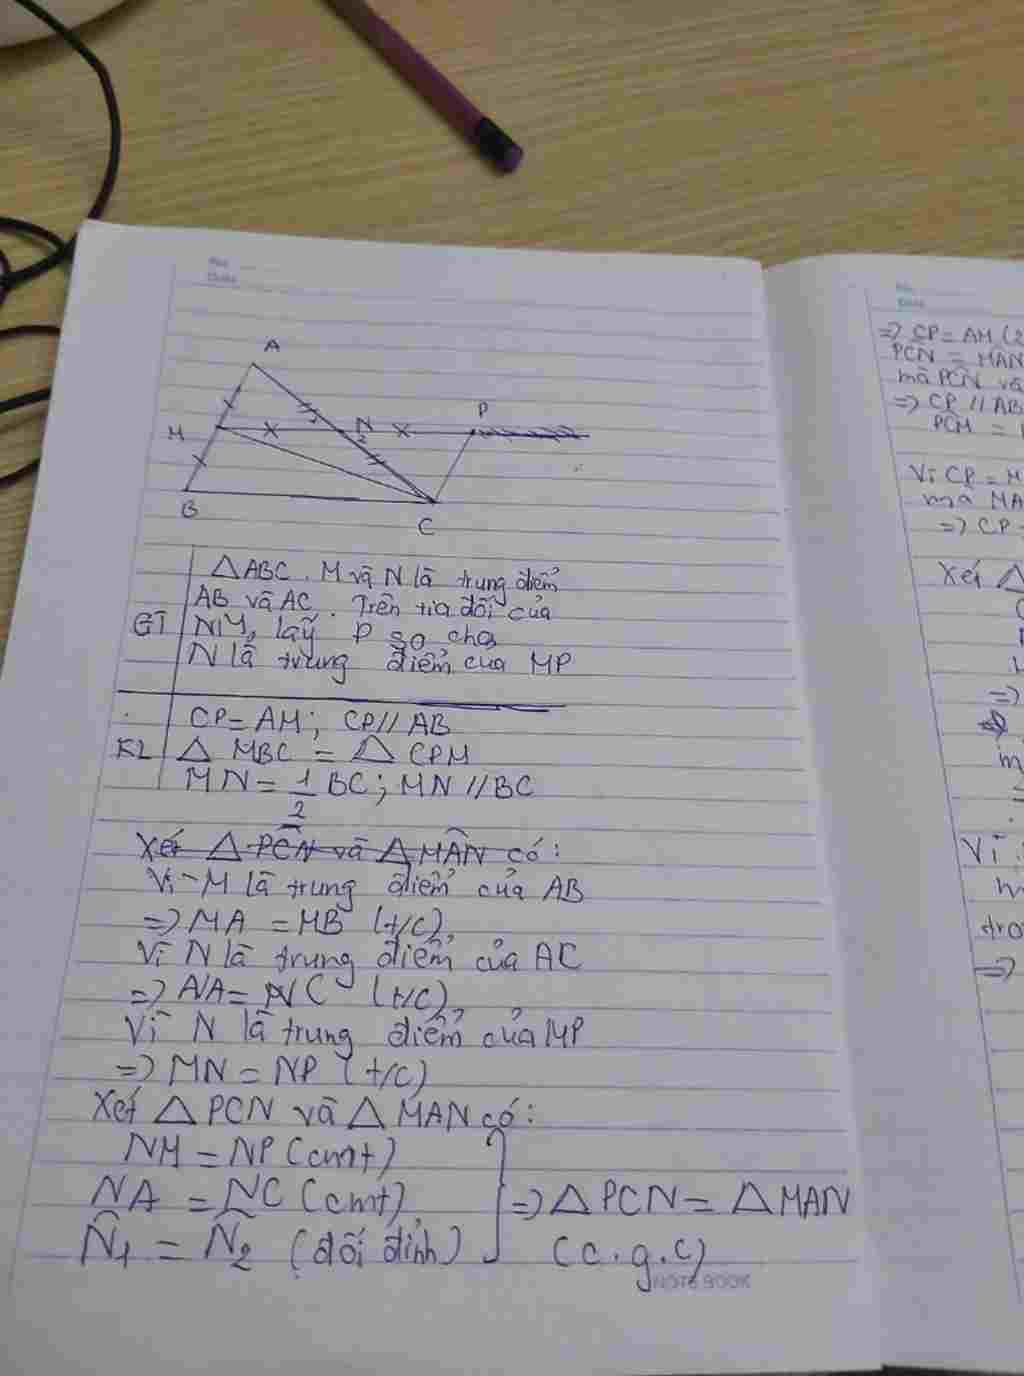 No.
Date
A
M
N
2
P
B
C
△ABC. M và N là trung điểm
AB và AC. Trên tia đối của
GT NM, lấy P sao cho
N là trung điểm của MP
CP = AM; CP // AB
KL △ MBC = △ CPM
MN = 1/2 BC; MN // BC
Xét △ PCN và △ MAN có:
Vì M là trung điểm của AB
=> MA = MB (t/c)
Vì N là trung điểm của AC
=> NA = NC (t/c)
Vì N là trung điểm của MP
=> MN = NP (t/c)
Xét △ PCN và △ MAN có:
NM = NP (cmt)
NA = NC (cmt) => △ PCN = △ MAN
N̂1 = N̂2 (đối đỉnh) (c.g.c)
NOTEBOOK
No.
Date
=> CP = AM (2
PCN = MAN
mà PCN và
=> CP // AB
PCM =
Vì CP = M
mà MA
=> CP =
Xét △
=>
m
Vì
tro
=>